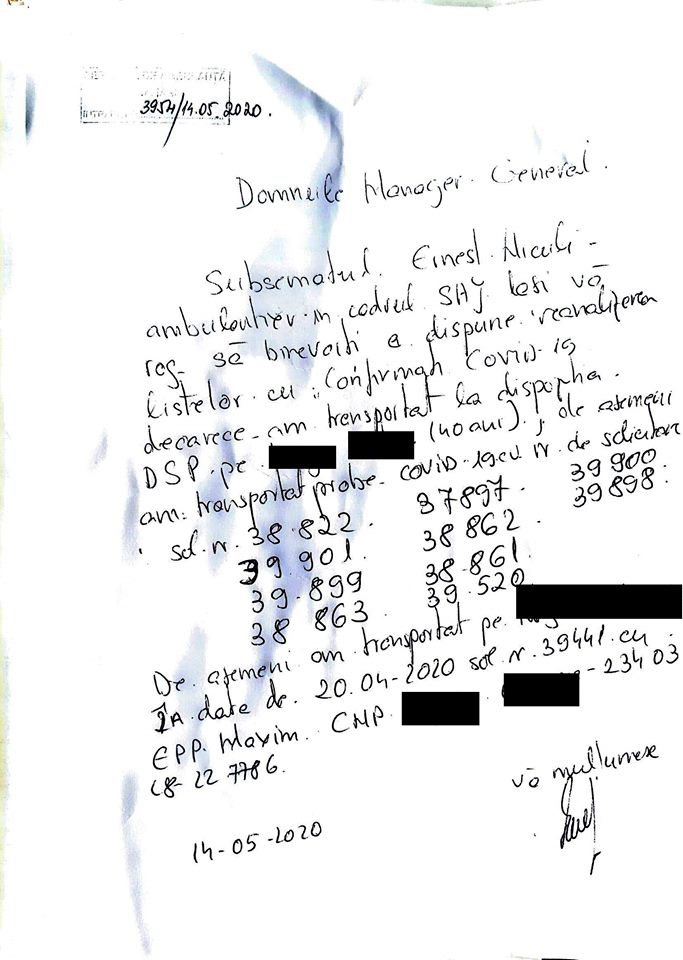 3954/14.05.2020.
Domnule Manager General.
Subsematul. Ernest Niculi-
ambulantier in cadrul SAJ Iasi vă
rog să binevoiti a dispune reanalizarea
listelor cu "Confirmati Covid-19
deoarece am transportat la dispozitia
DSP pe (40 ani), de asemeni
am transportat probe covid-19 cu nr de solicitare
sol. nr. 38.822. 37897. 39900
39 901. 38 862. 39898.
39.899 38.861.
38 863 39.520
De asemeni am transportat pe
În data de 20.04-2020 sol nr. 39441 cu
EPP. Maxim. CNP. -23403
78G.
vă multumesc
14-05-2020